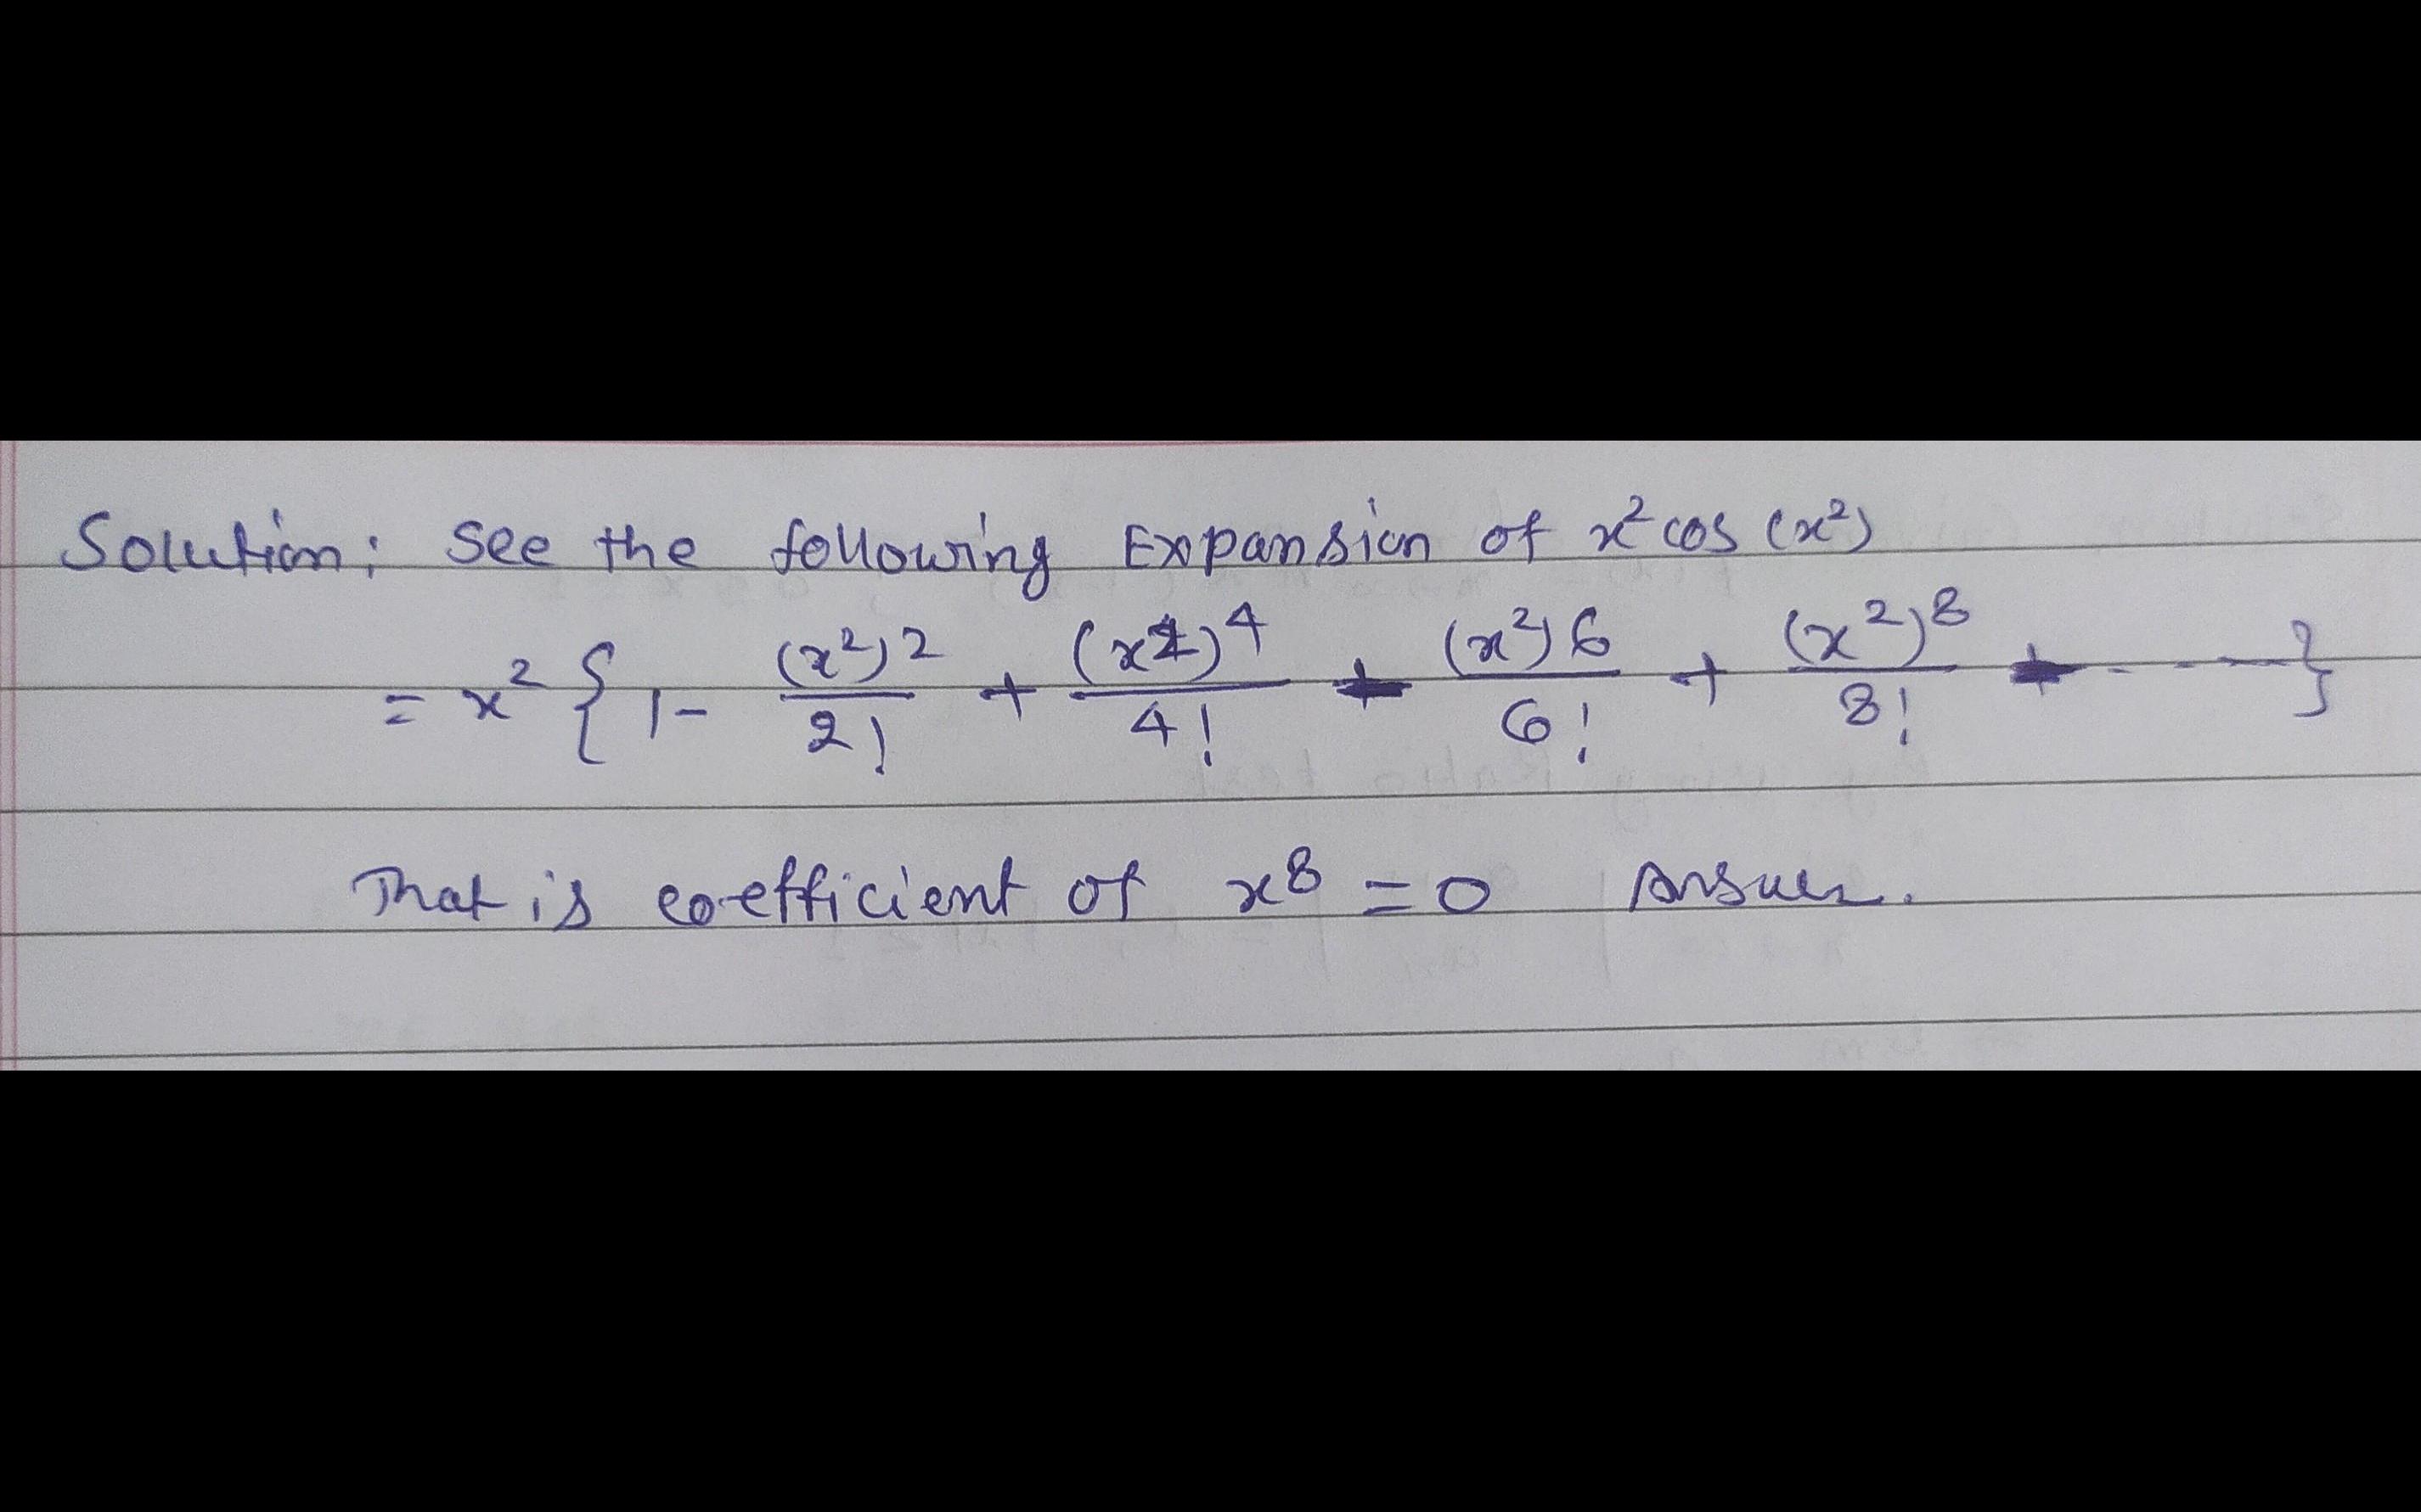 Solution: See the following Expansion of x² cos (x²)
= x² { 1 - (x²)²/2! + (x²)⁴/4! - (x²)⁶/6! + (x²)⁸/8! - - - - }
That is co-efficient of x⁸ = 0 Answer.